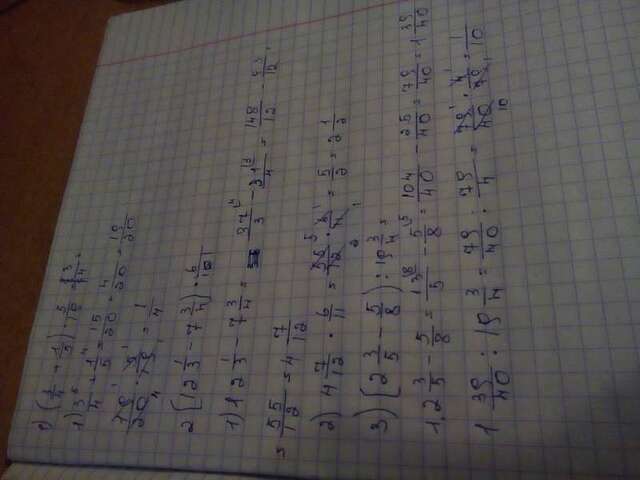 1) 3/4 + 1/5 = 15/20 + 4/20 = 19/20
= 1/4
2 (12 1/3 - 7 3/4) · 6/11
1) 12 1/3 - 7 3/4 = 37/3 - 31/4 = 148/12 - 93/12 =
= 55/12 = 4 7/12
2) 4 7/12 · 6/11 = 55/12 · 6/11 = 5/2 = 2 1/2
3) (2 3/5 - 5/8) : 19 3/4
1. 2 3/5 - 5/8 = 13/5 - 5/8 = 104/40 - 25/40 = 79/40 = 1 39/40
1 39/40 : 19 3/4 = 79/40 : 79/4 = 79/40 · 4/79 = 1/10